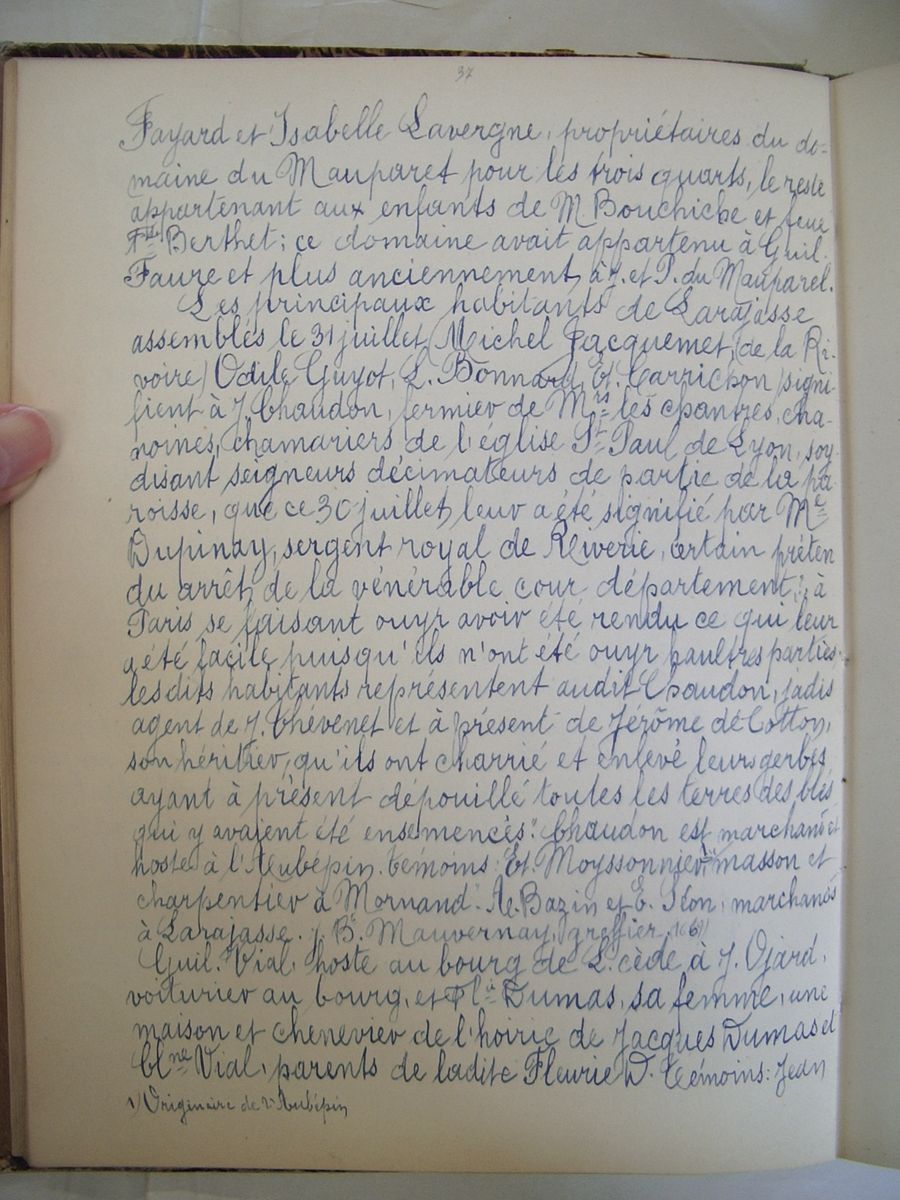 37
Fayard et Isabelle Lavergne, propriétaires du do=
maine du Mauparet pour les trois quarts, le reste
appartenant aux enfants de M. Bouchiche et feue
Berthet ; ce domaine avait appartenu à Guil.
Faure et plus anciennement à J. et P. du Mauparel.
Les principaux habitants de Larajasse
assemblés le 31 juillet, Michel Jacquemet, (de la Ri-
voire) Odile Guyot, L. Bonnard, Et. Carrichon, signi-
fient à J. Chaudon, fermier de Mrs les chantres, cha-
noines, chamariers de l'église St Paul de Lyon, soy-
disant seigneurs décimateurs de partie de la pa-
roisse, que ce 30 juillet, leur a été signifié par Me
Dupinay, sergent royal de Riverie, certain préten
du arrêt de la vénérable cour, département, à
Paris se faisant ouyr avoir été rendu ce qui leur
a été facile puisqu'ils n'ont été ouyr haultres parties.
lesdits habitants représentent audit Chaudon, jadis
agent de J. Thévenet et à présent de Jérôme de Cotton,
son héritier, qu'ils ont charrié et enlevé leurs gerbes
ayant à présent dépouillé toutes les terres des blés
qui y avaient été ensemencés. Chaudon est marchand et
hoste à l'Aubépin. Témoins : Et. Moyssonnier, masson et
charpentier à Mornand. Bazin et E. Séon, marchands
à Larajasse. J. B. Mauvernay, greffier.
Guil. Vial, hoste au bourg de L. cède à J. Ojard,
voiturier au bourg, et Dumas, sa femme, une
maison et chenevier de l'hoirie de Jacques Dumas et
Cl.ne Vial, parents de ladite Fleurie D. Témoins : Jean
1) Originaire de l'Aubépin